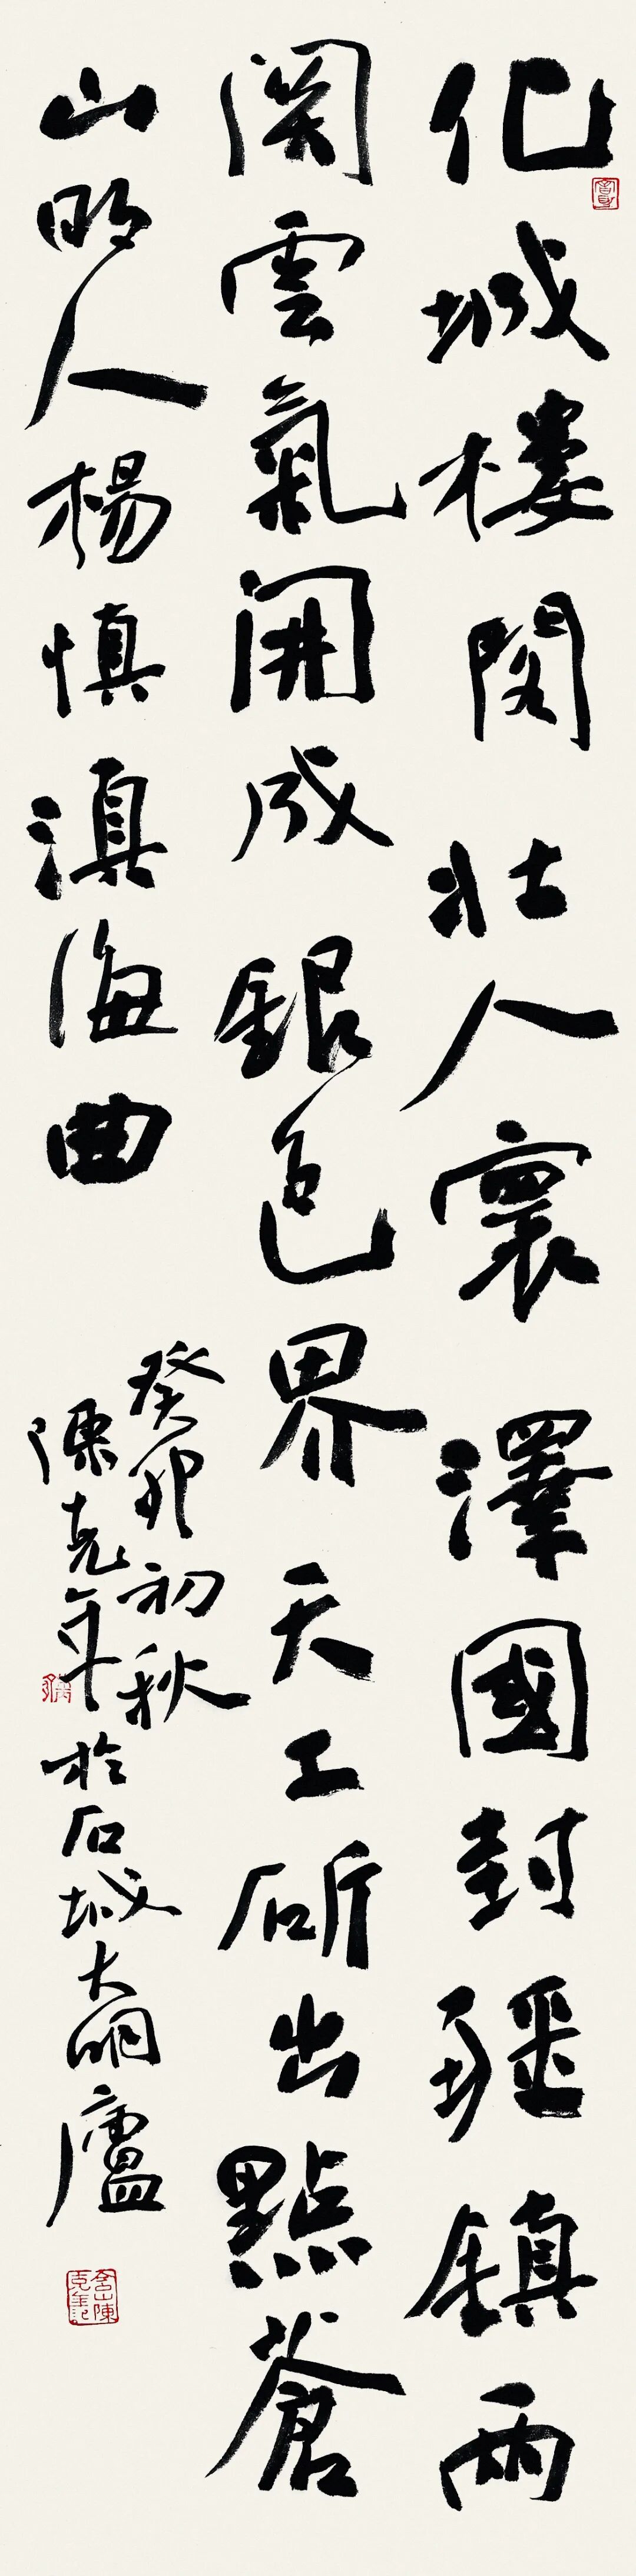 化城樓閣壯人寰澤國封疆鎮兩
関雲氣開成銀色界天工斫出點蒼
山明人楊慎滇海曲
癸卯初秋
陳克年於石城大明廬